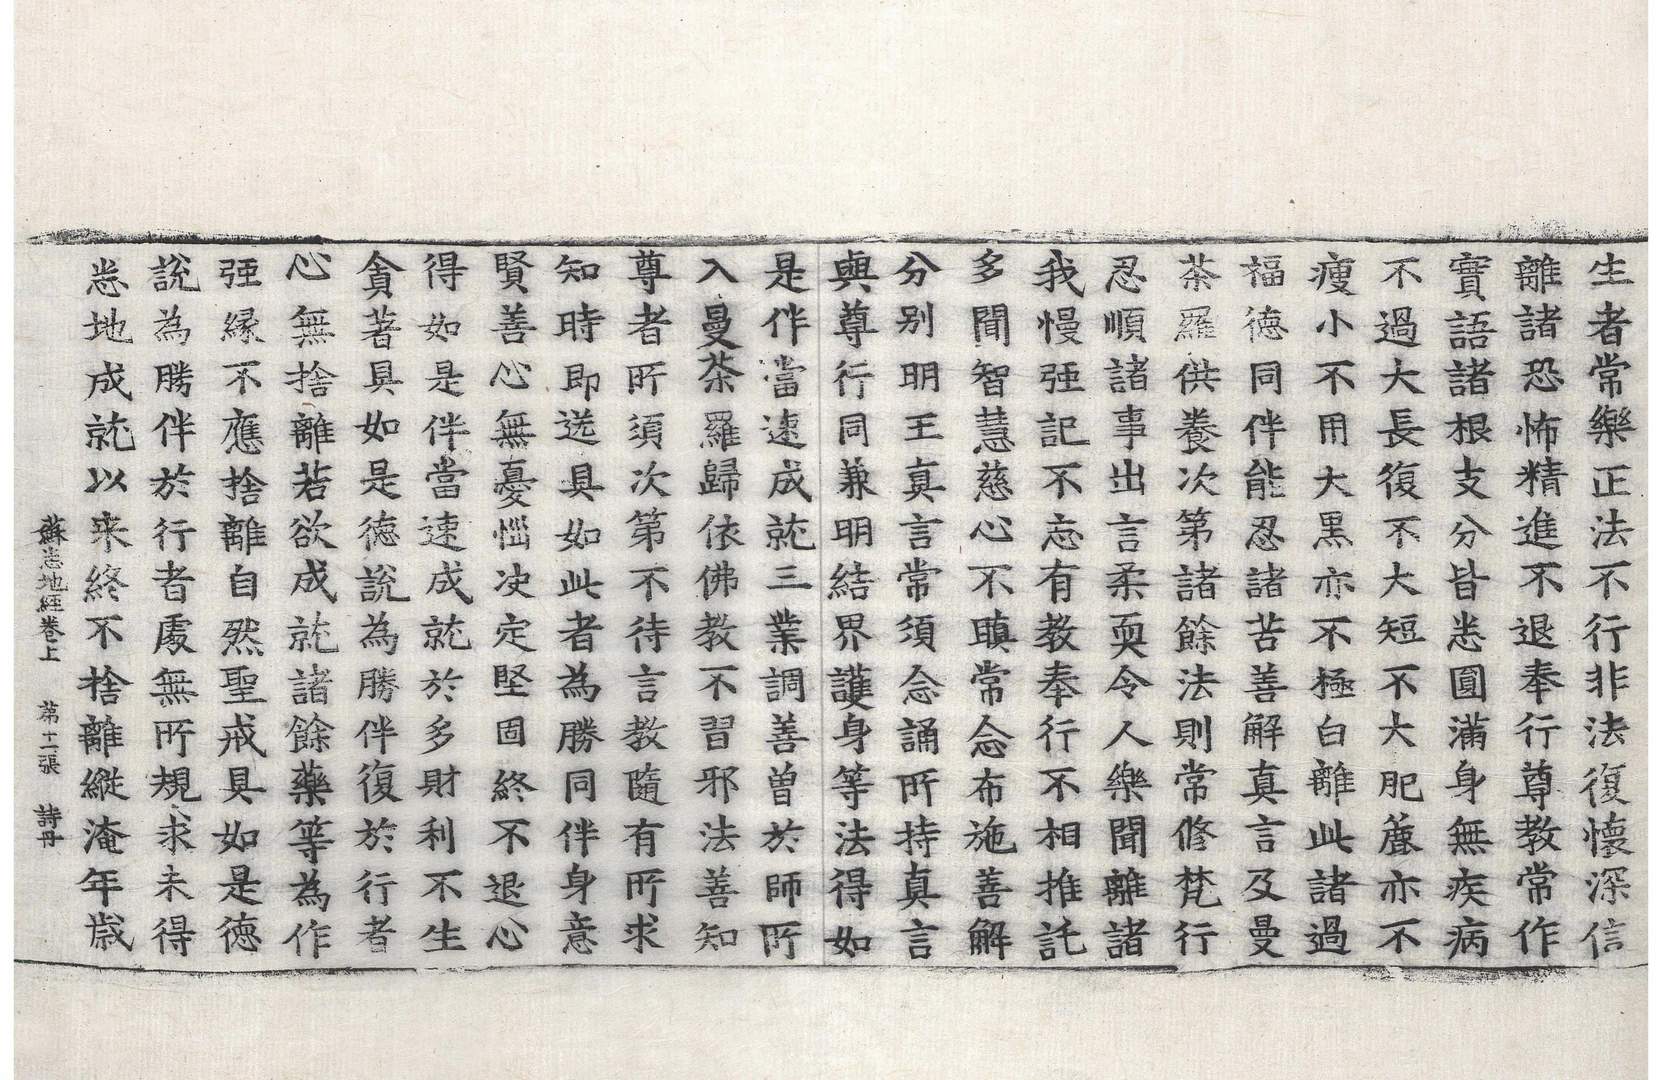 生者常樂正法不行非法復懷深信
離諸恐怖精進不退奉行尊教常作
實語諸根支分皆悉圓滿身無疾病
不過大長復不大短不大肥麁亦不
瘦小不用大黑亦不極白離此諸過
福德同伴能忍諸苦善解真言及曼
茶羅供養次第諸餘法則常修梵行
忍順諸事出言柔耎令人樂聞離諸
我慢强記不忘有教奉行不相推託
多聞智慧慈心不瞋常念布施善解
分別明王真言常須念誦所持真言
與尊行同兼明結界護身等法得如
是伴當速成就三業調善曾於師所
入曼茶羅歸依佛教不習邪法善知
尊者所須次第不待言教隨有所求
知時即送具如此者為勝同伴身意
賢善心無憂惱決定堅固終不退心
得如是伴當速成就於多財利不生
貪著具如是德說為勝伴復於行者
心無捨離若欲成就諸餘藥等為作
强緣不應捨離自然聖戒具如是德
說為勝伴於行者處無所規求未得
悉地成就以来終不捨離縱淹年歲
蘇悉地經卷上 第十一張 詩丹